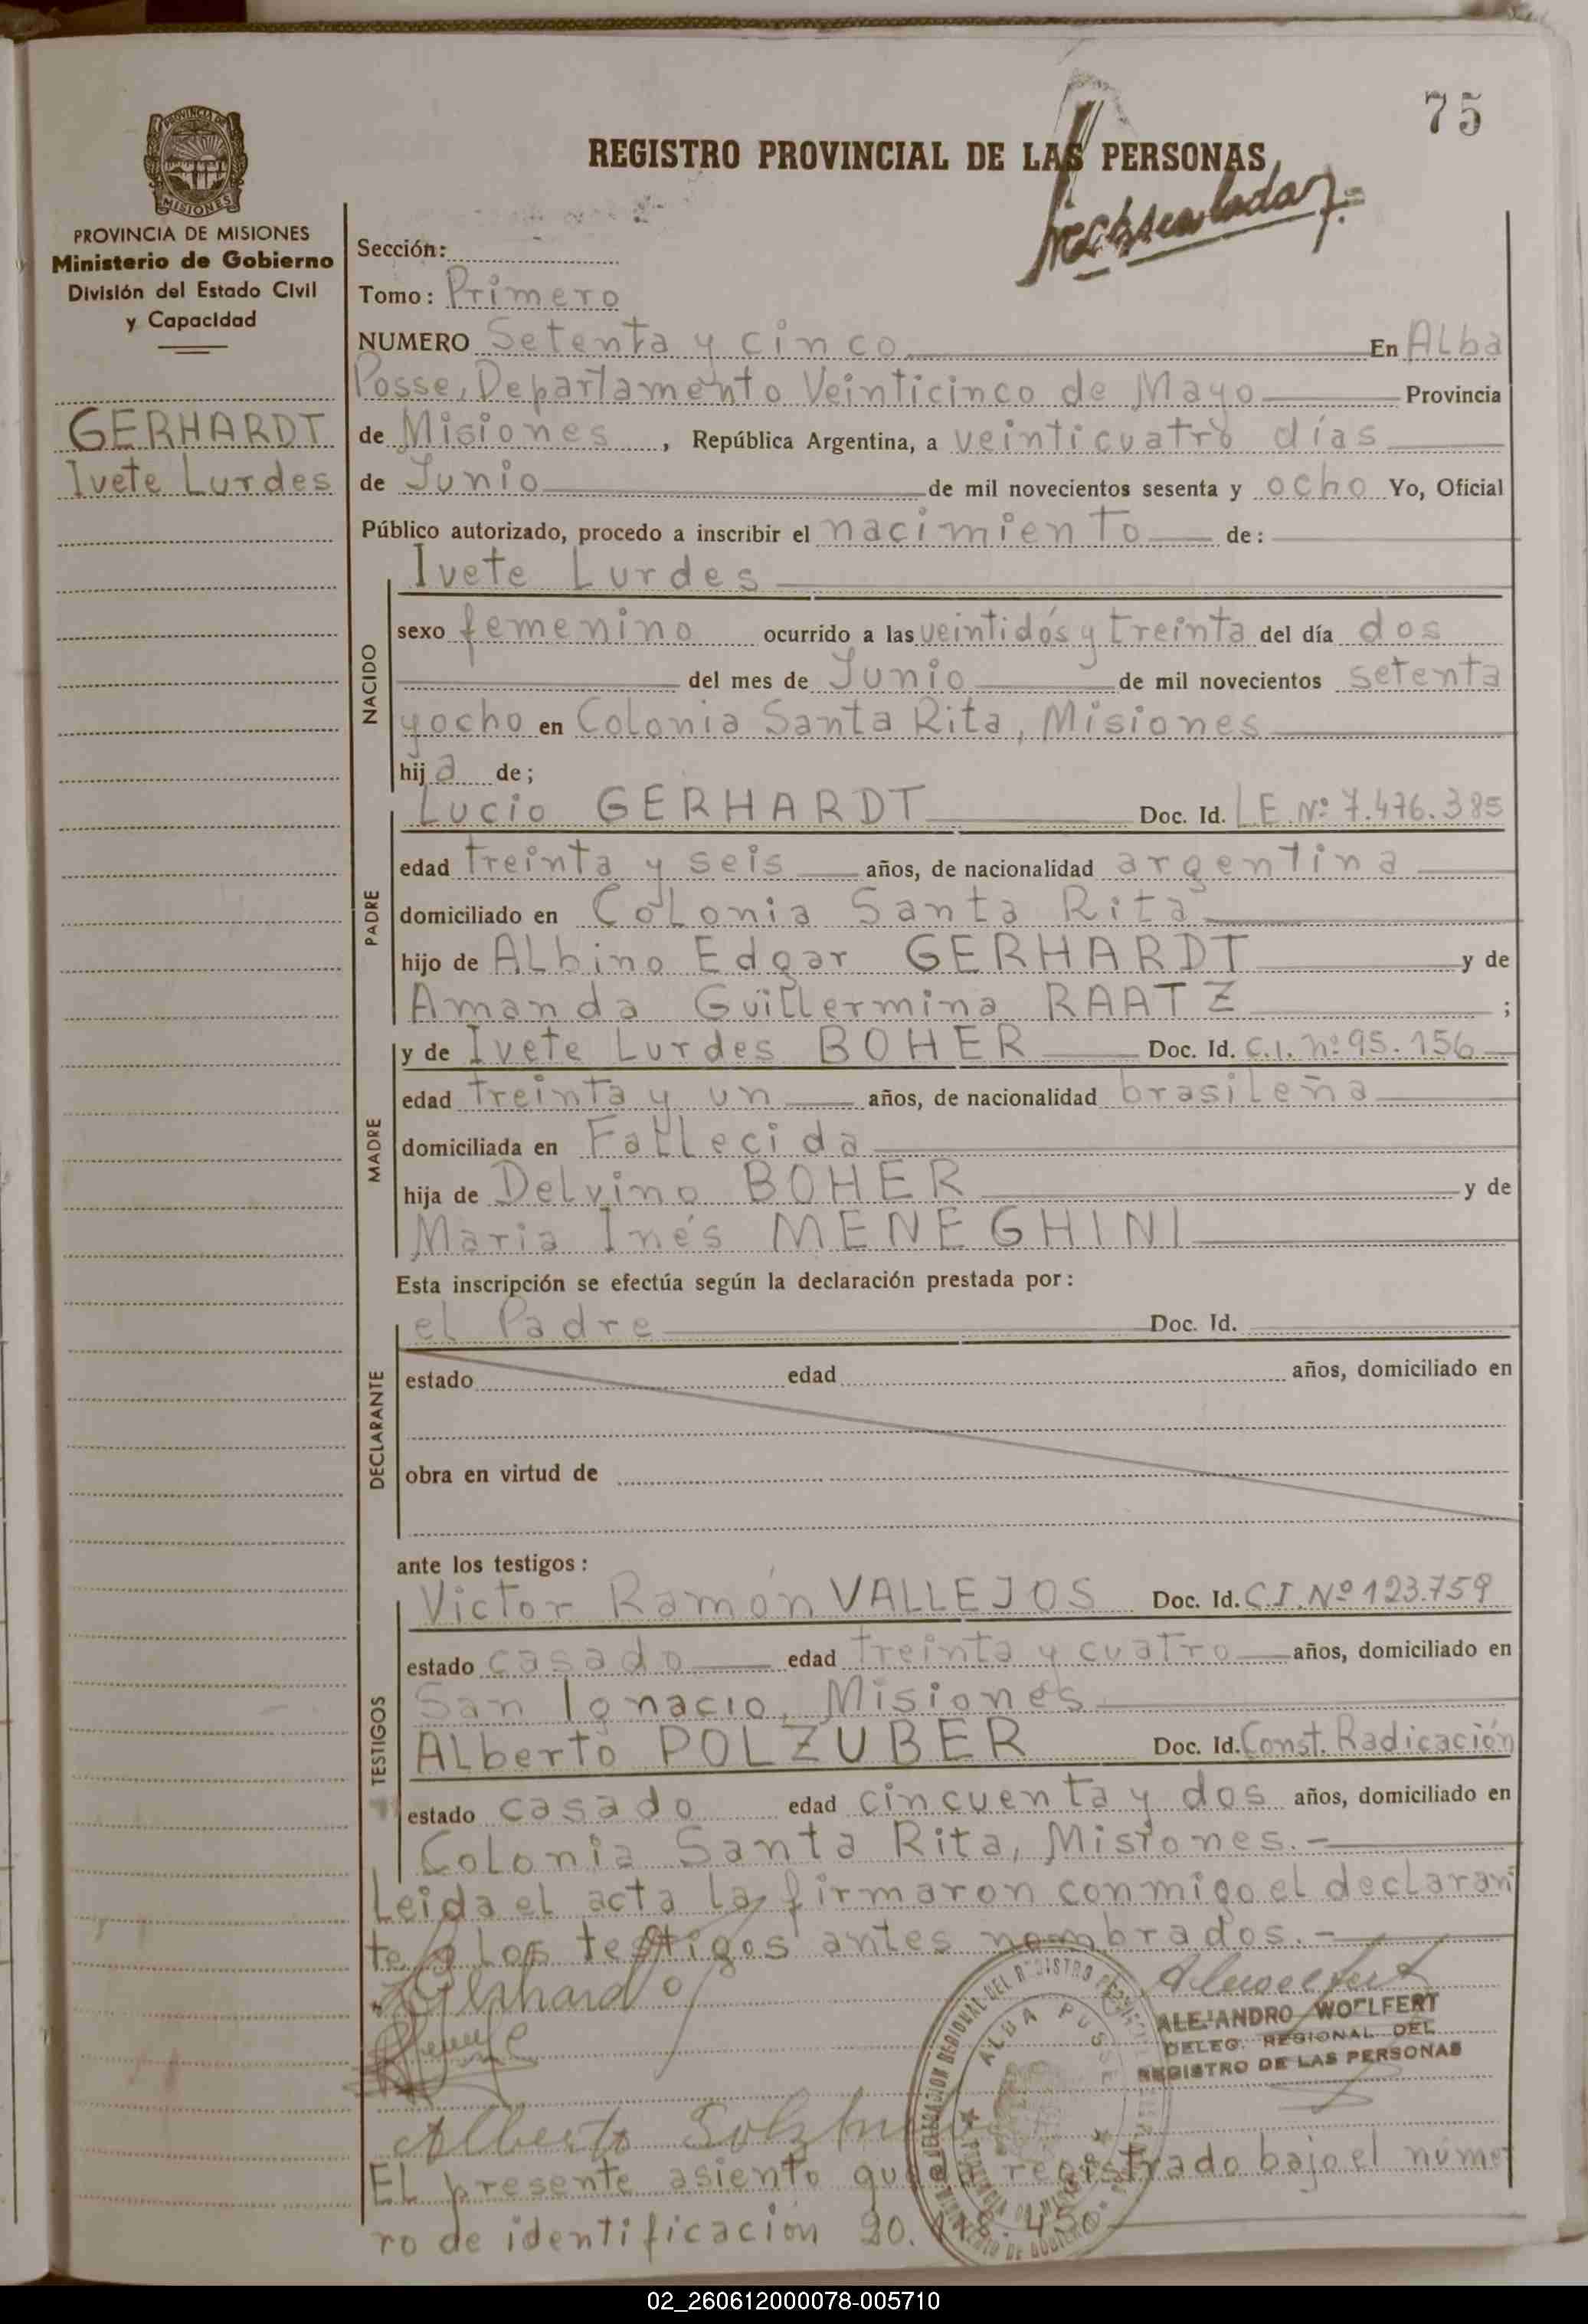 75
REGISTRO PROVINCIAL DE LAS PERSONAS
PROVINCIA DE MISIONES
Ministerio de Gobierno
División del Estado Civil
y Capacidad
GERHARDT
Ivete Lurdes
Sección:
Tomo: Primero
NUMERO Setenta y cinco En Alba
Posse, Departamento Veinticinco de Mayo Provincia
de Misiones, República Argentina, a veinticuatro días
de Junio de mil novecientos sesenta y ocho Yo, Oficial
Público autorizado, procedo a inscribir el nacimiento de:
Ivete Lurdes
NACIDO
sexo femenino ocurrido a las veintidós y treinta del día dos
del mes de Junio de mil novecientos setenta
y ocho en Colonia Santa Rita, Misiones
hija de;
PADRE
Lucio GERHARDT Doc. Id. L.E. Nº 7.476.385
edad treinta y seis años, de nacionalidad argentina
domiciliado en Colonia Santa Rita
hijo de Albino Edgar GERHARDT y de
Amanda Guillermina RAATZ ;
MADRE
y de Ivete Lurdes BOHER Doc. Id. C.I. nº 95.156
edad treinta y un años, de nacionalidad brasileña
domiciliada en Fallecida
hija de Delvino BOHER y de
Maria Inés MENEGHINI
Esta inscripción se efectúa según la declaración prestada por:
DECLARANTE
el Padre Doc. Id.
estado edad años, domiciliado en
obra en virtud de
ante los testigos:
TESTIGOS
Victor Ramón VALLEJOS Doc. Id. C.I. Nº 123.759
estado casado edad treinta y cuatro años, domiciliado en
San Ignacio, Misiones
Alberto POLZUBER Doc. Id. Const. Radicación
estado casado edad cincuenta y dos años, domiciliado en
Colonia Santa Rita, Misiones.-
Leida el acta la firmaron conmigo el declaran
te y los testigos antes nombrados.-
ALEJANDRO WOELFERT
DELEG. REGIONAL DEL
REGISTRO DE LAS PERSONAS
ALBA POSSE
Alberto
El presente asiento queda registrado bajo el núme
ro de identificación 20.
02_260612000078-005710